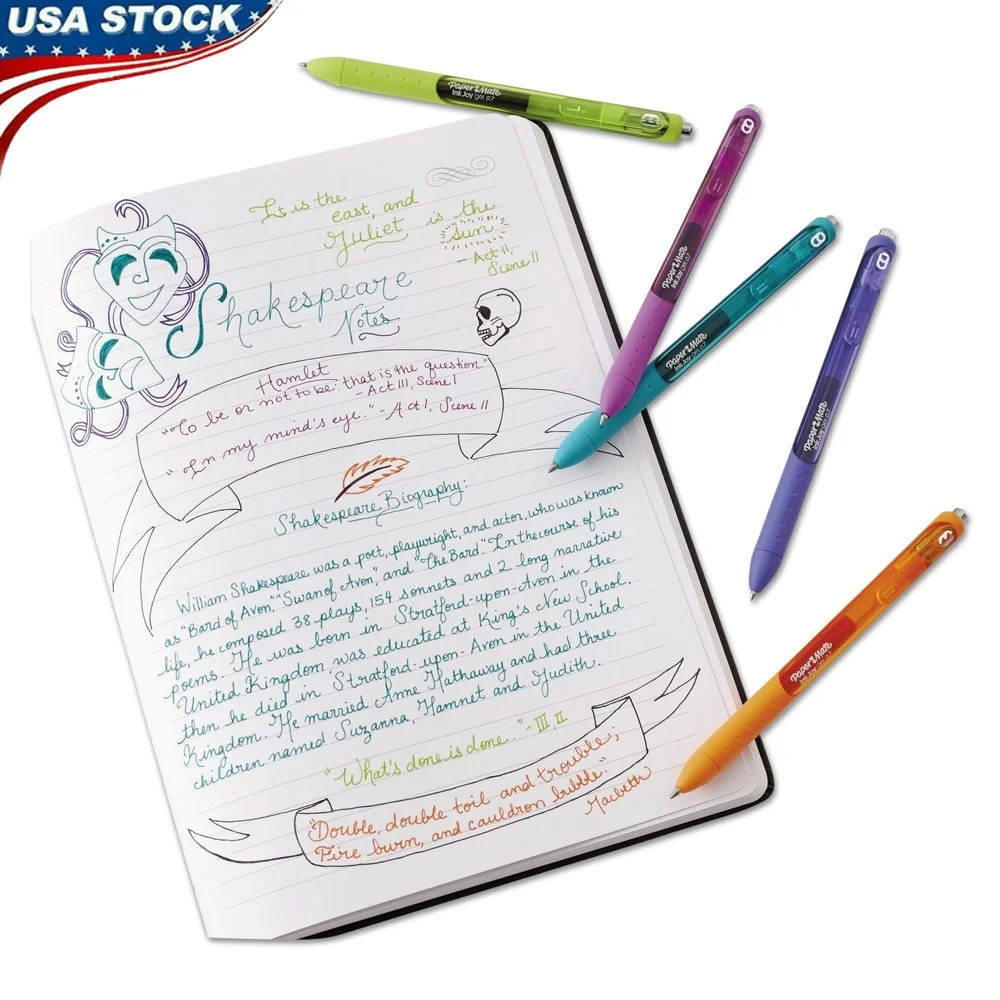 USA STOCK
Paper Mate
InkJoy gel 0.7
Paper Mate
InkJoy gel 0.7
Paper Mate
InkJoy gel 0.7
Paper Mate
InkJoy gel 0.7
Paper Mate
InkJoy gel 0.7
It is the
east, and
Juliet is the
sun
- Act II,
Scene II
Shakespeare
Notes
Hamlet
"To be or not to be: that is the question."
- Act III, Scene I
"In my mind's eye." - Act I, Scene II
Shakespeare Biography:
William Shakespeare was a poet, playwright, and actor, who was known
as "Bard of Avon," "Swan of Avon", and "The Bard." In the course of his
life, he composed 38 plays, 154 sonnets and 2 long narrative
poems. He was born in Stratford-upon-Avon in the
United Kingdom, was educated at King's New School,
then he died in Stratford-upon-Avon in the United
Kingdom. He married Anne Hathaway and had three
children named Suzanna, Hamnet and Judith.
"What's done is done." - III II
"Double, double toil and trouble;
Fire burn, and cauldron bubble."
Macbeth